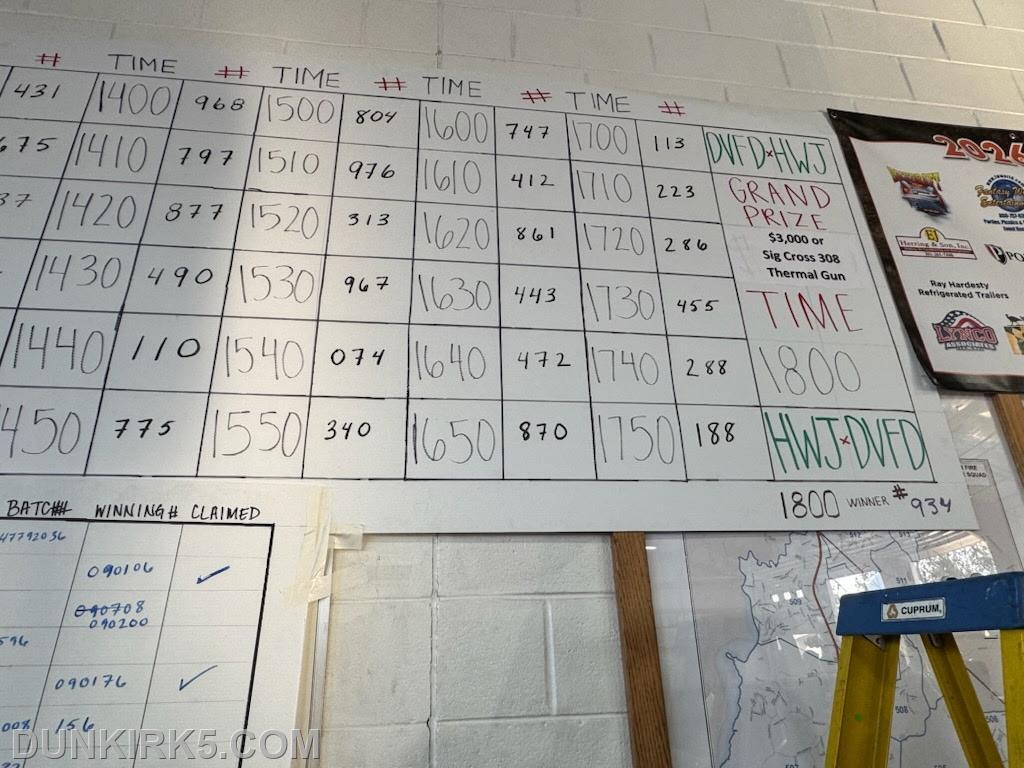 # TIME # TIME # TIME # TIME #
431 1400 968 1500 804 1600 747 1700 113 DVFD x HWJ
675 1410 797 1510 976 1610 412 1710 223 GRAND
PRIZE
37 1420 877 1520 313 1620 861 1720 286 $3,000 or
Sig Cross 308
Thermal Gun
1430 490 1530 967 1630 443 1730 455 TIME
1440 110 1540 074 1640 472 1740 288 1800
450 775 1550 340 1650 870 1750 188 HWJ x DVFD
1800 WINNER # 934
BATCH# WINNING # CLAIMED
47792036
090106 ✓
090708
090200
596
090176 ✓
008 156
2026
EJ
Herring & Son, Inc.
Ray Hardesty
Refrigerated Trailers
LYNCO
ASSOCIATES
PO
FIRE
SQUAD
512
511
509
508
507
CUPRUM
DUNKIRK5.COM